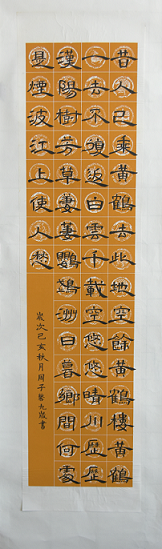 昔人已乘黃鶴去此地空餘黃鶴樓黃鶴
一去不復返白雲千載空悠悠晴川歷歷
漢陽樹芳草萋萋鸚鵡洲日暮鄉關何處
是煙波江上使人愁
歲次己亥秋月周子九歲書